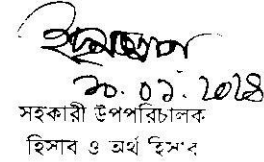 ২০.০১.2024
সহকারী উপপরিচালক
হিসাব ও অর্থ হিসাব